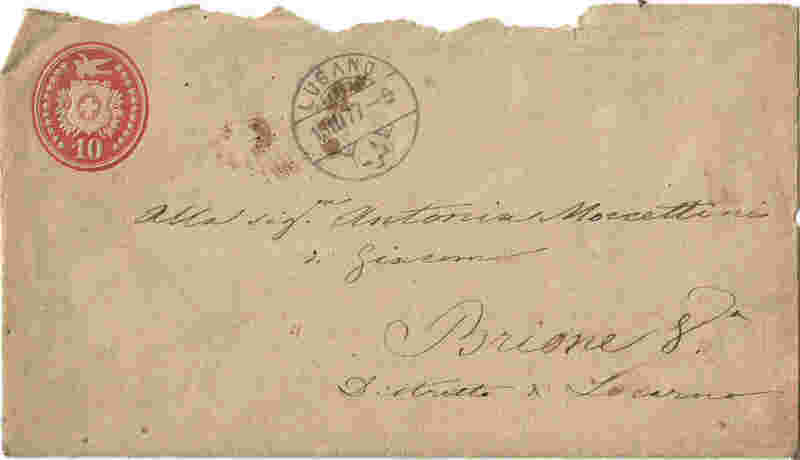 10
LUGANO
77
Alla sig.ra Antonia Moccettini
di Giacomo
Brione
Distretto di Locarno